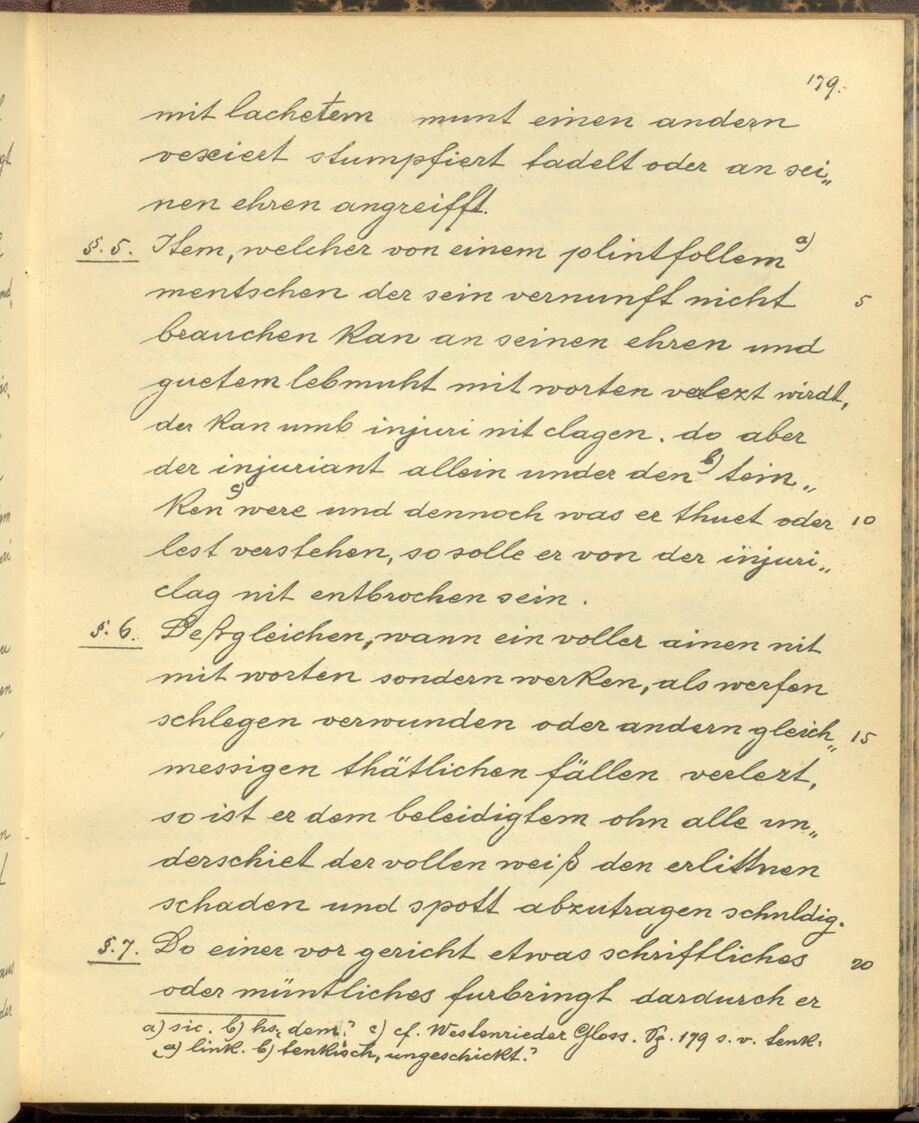 179.
mit lachetem munt einen andern
vexiert stumpfiert tadelt oder an sei„
nen ehren angreifft.
§. 5. Item, welcher von einem plintfollem a)
mentschen der sein vernunft nicht 5
brauchen kan an seinen ehren und
guetem lebmuht mit worten valezt wirdt,
der kan umb injuri nit clagen. do aber
der injuriant allein under den b) tein„
ken c) were und dennoch was er thuet oder 10
lest verstehen, so solle er von der injuri„
clag nit entbrochen sein.
§. 6. Deßgleichen, wann ein voller ainen nit
mit worten sondern werken, als werfen
schlegen verwunden oder andern gleich„ 15
messigen thätlichen fällen verlezt,
so ist er dem beleidigtem ohn alle un„
derschiet der vollen weiß den erlittnen
schaden und spott abzutragen schuldig.
§. 7. Do einer vor gericht etwas schriftliches 20
oder müntliches furbringt dardurch er
a) sic. b) hs: dem? c) cf. Westenrieder Gloss. Pg. 179 s. v. tenk.
a) link. b) tenkisch, ungeschickt.?